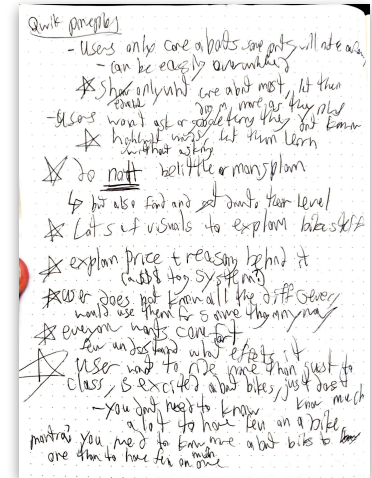 Qwik principles
- Users only care abouts some parts, will not
- can be easily overwhelmed
☆ Show only what care about most, let them
dig in more as they
- Users won't ask or google terms they dont know
☆ highlight words, let them learn
without asking
☆ Do not belittle or mansplain
↳ but also find and get down to their level
☆ Lots of visuals to explain bike stuff
☆ explain price + reason behind it
☆ User does not know all the diff
would use them for 5 more than anyway
☆ everyone wants comfort
few understand what effects it
☆ User want to ride more than just to
class, is excited about bikes, just doesnt
know much
- You dont need to know
a lot to have fun on a bike
mantra: you need to know more about bikes to
one than to have fun on one